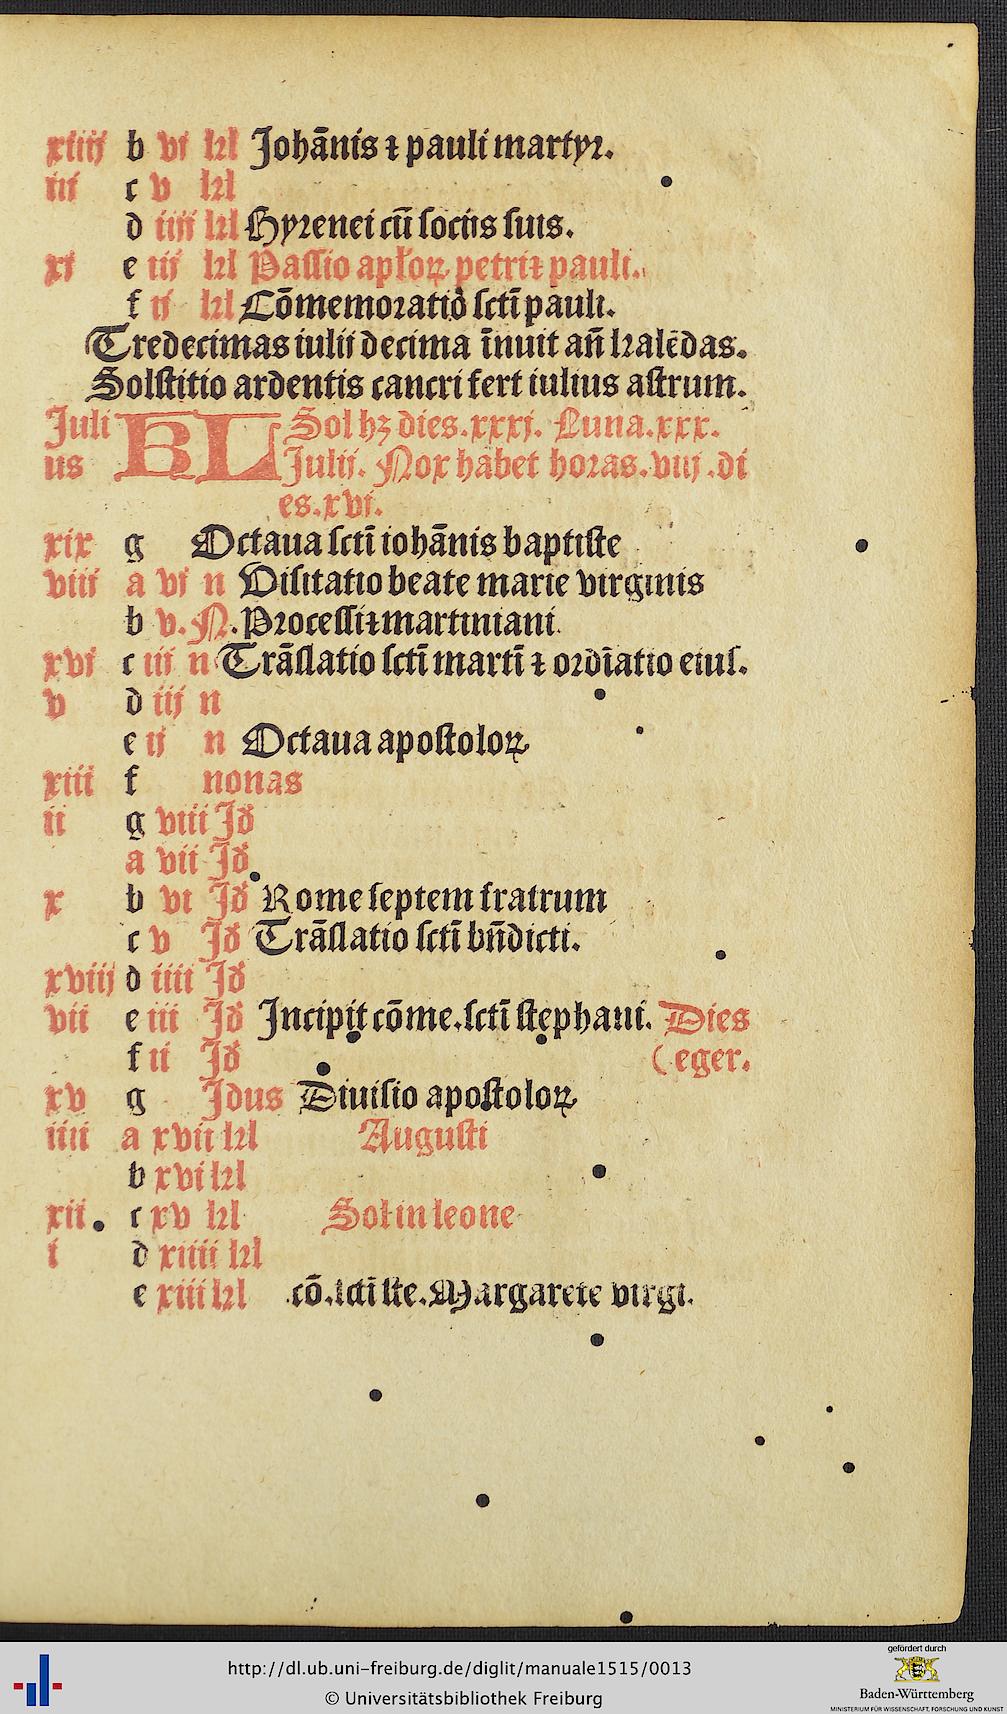 xiiij b vi kl Johānis ⁊ pauli martyꝛ.
iij c v kl
d iiij kl Hyꝛenei cū ſociis ſuis.
xj e iij kl Paſſio apłoꝝ petri ⁊ pauli.
f ij kl Cōmemoꝛatio ſcti̅ pauli.
Tredecimas iulii decima īnuit añ kalēdas.
Solſtitio ardentis cancri fert iulius aſtrum.
Juli KL Sol hꝫ dies.xxxj. Luna.xxx.
us Julij. Nox habet hoꝛas.viij.di
es.xvj.
xix g Octaua ſcti̅ iohānis baptiſte
viij a vj n Viſitatio beate marie virginis
b v. N. Pꝛoceſſi ⁊ martiniani.
xvj c iij n Trāſlatio ſcti̅ marti̅ ⁊ oꝛdi̅atio eiuſ.
v d iij n
e ij n Octaua apoſtoloꝝ
xiii f nonas
ii g viii Jď
a vii Jď
x b vi Jď Rome ſeptem fratrum
c v Jď Trāſlatio ſcti̅ bn̄dicti.
xviij d iiii Jď
vii e iii Jď Incipit cōme.ſcti̅ ſtephani. Dies
f ii Jď ( eger.
xv g Jdus Diuiſio apoſtoloꝝ
iiii a xvii kl Auguſti
b xvi kl
xii. c xv kl Sol in leone
i d xiiii kl
e xiii kl cō.ſcti̅ ſte. Margarete virgi.
http://dl.ub.uni-freiburg.de/diglit/manuale1515/0013
© Universitätsbibliothek Freiburg
gefördert durch
Baden-Württemberg
MINISTERIUM FÜR WISSENSCHAFT, FORSCHUNG UND KUNST